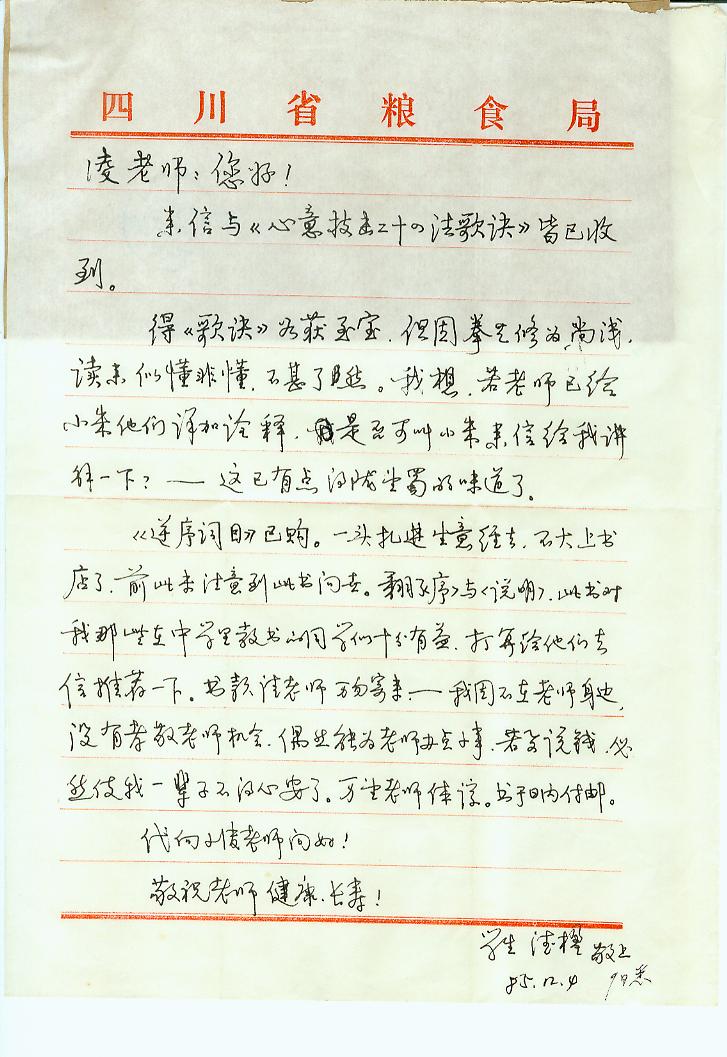 四川省粮食局
凌老师：您好！
来信与《心意技击二十四法歌诀》皆已收
到。
得《歌诀》如获至宝，但因拳艺修为尚浅，
读来似懂非懂，不甚了然。我想，若老师已给
小朱他们详加诠释，是否可叫小朱来信给我讲
解一下？——这已有点得陇望蜀的味道了。
《逆序词目》已购。一头扎进生意经去，不大上书
店了，前此未注意到此书问世。翻《序》与《说明》，此书对
我那些在中学里教书的同学们十分有益，打算给他们去
信推荐一下。书款请老师万勿寄来——我因不在老师身边，
没有孝敬老师机会，偶然能为老师办点小事，若要说钱，必
然使我一辈子不得心安了。万望老师体谅。书于日内付邮。
代向小凌老师问好！
敬祝老师健康、长寿！
学生 敬上
85.12.4 9日悉